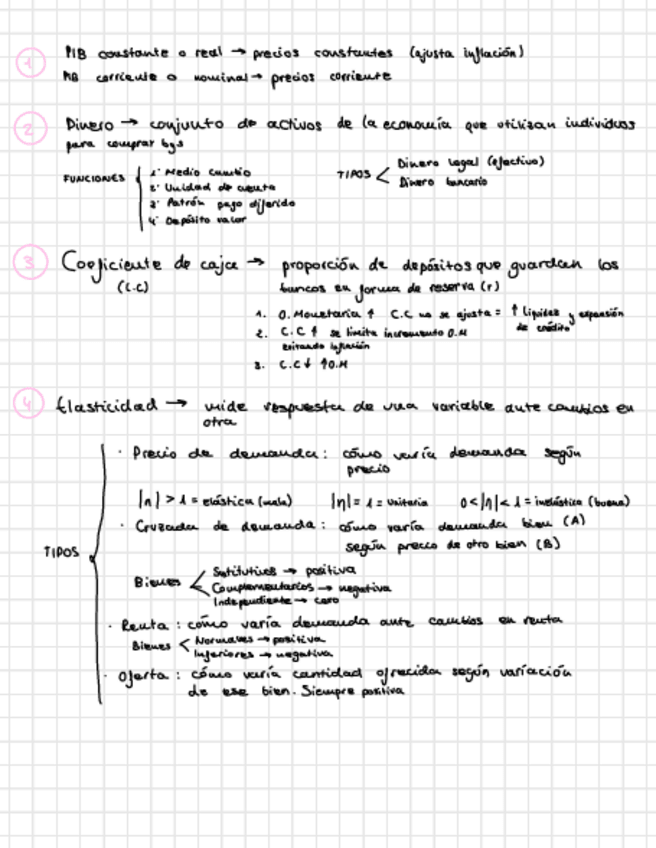 1 PIB constante o real → precios constantes (ajusta inflación)
PIB corriente o nominal → precios corriente
2 Dinero → conjunto de activos de la economía que utilizan individuos
para comprar bys
FUNCIONES
1º Medio cambio
2º Unidad de cuenta
3º Patrón pago diferido
4º Depósito valor
TIPOS
Dinero legal (efectivo)
Dinero bancario
3 Coeficiente de caja → proporción de depósitos que guardan los
(C.C) bancos en forma de reserva (r)
1. O. Monetaria ↑ C.C no se ajusta = ↑ liquidez y expansión
de crédito
2. C.C ↑ se limita incremento O.M
evitando inflación
3. C.C ↓ ↑O.M
4 Elasticidad → mide respuesta de una variable ante cambios en
otra
TIPOS
· Precio de demanda: cómo varía demanda según
precio
|η| > 1 = elástica (mala) |η| = 1 = unitaria 0<|η|< 1 = inelástica (buena)
· Cruzada de demanda: cómo varía demanda bien (A)
según precio de otro bien (B)
Bienes
Sutitutivos → positiva
Complementarios → negativa
Independiente → cero
· Renta: cómo varía demanda ante cambios en renta
Bienes
Normales → positiva
Inferiores → negativa
· Oferta: cómo varía cantidad ofrecida según variación
de ese bien. Siempre positiva